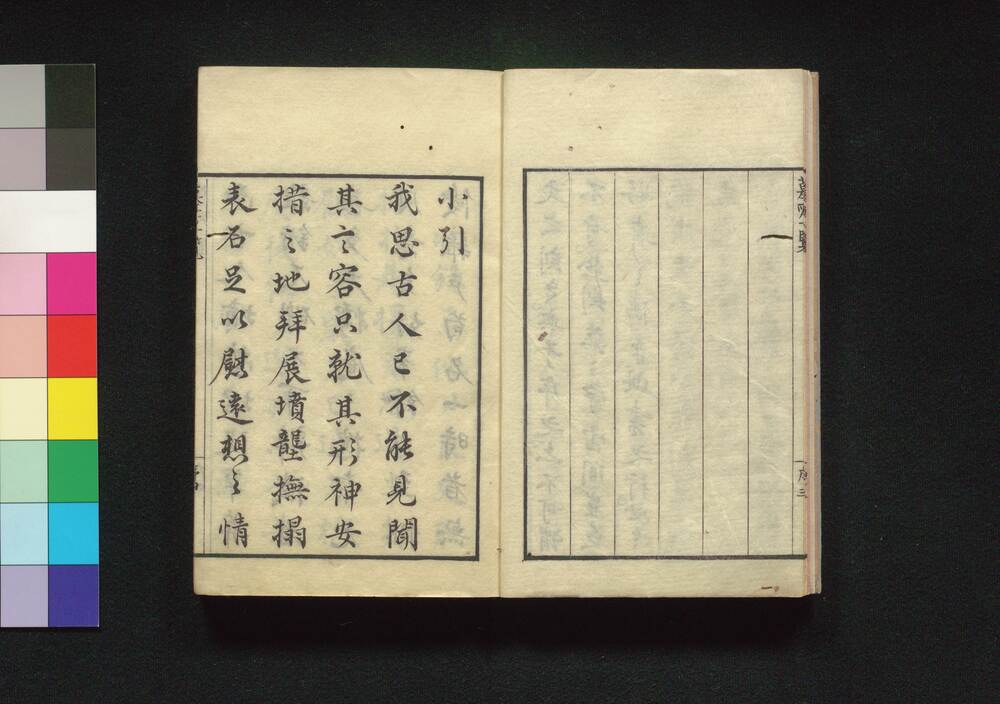 墓所一覧
序三
小引
我思古人已不能見聞
其言容只就其形神安
措之地拜展墳壟撫搨
表石足以慰遠想之情